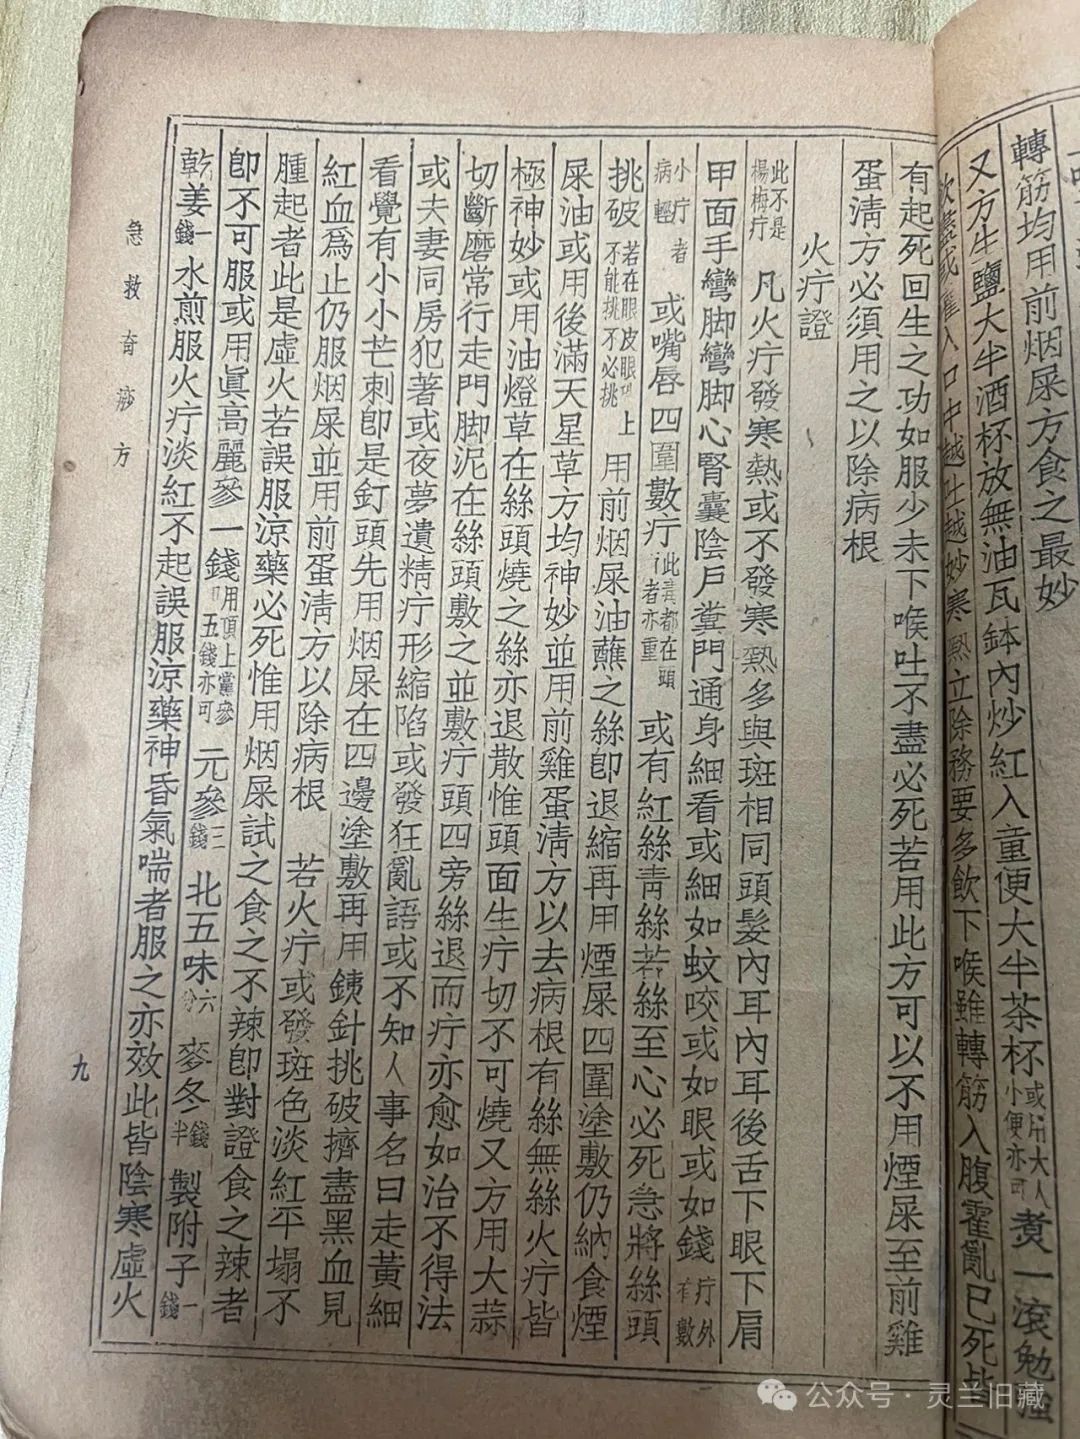 轉筋均用前烟屎方食之最妙
又方生鹽大半酒杯放無油瓦鉢內炒紅入童便大半茶杯或用大人小便亦可煑一滾勉强
入口中越吐越妙寒熱立除務要多飲下喉雖轉筋入腹霍亂已死
有起死回生之功如服少未下喉吐不盡必死若用此方可以不用煙屎至前雞
蛋淸方必須用之以除病根
火疔證
此不是楊梅疔 凡火疔發寒熱或不發寒熱多與斑相同頭髮內耳內耳後舌下眼下肩
甲面手彎脚彎脚心腎囊陰戶糞門通身細看或細如蚊咬或如眼或如錢疔外有數
小疔者病輕 或嘴唇四圍數疔此毒都在頭者亦重 或有紅絲靑絲若絲至心必死急將絲頭
挑破若在眼皮眼上不能挑不必挑 用前烟屎油蘸之絲卽退縮再用煙屎四圍塗敷仍納食煙
屎油或用後滿天星草方均神妙並用前雞蛋淸方以去病根有絲無絲火疔皆
極神妙或用油燈草在絲頭燒之絲亦退散惟頭面生疔切不可燒又方用大蒜
切斷磨常行走門脚泥在絲頭敷之並敷疔頭四旁絲退而疔亦愈如治不得法
或夫妻同房犯著或夜夢遺精疔形縮陷或發狂亂語或不知人事名曰走黃細
看覺有小小芒刺卽是釘頭先用烟屎在四邊塗敷再用銕針挑破擠盡黑血見
紅血爲止仍服烟屎並用前蛋淸方以除病根 若火疔或發斑色淡紅平塌不
腫起者此是虛火若誤服涼藥必死惟用烟屎試之食之不辣卽對證食之辣者
卽不可服或用眞高麗參一錢用頂上黨參五錢亦可 元參二錢 北五味六分 麥冬錢半 製附子一錢
乾姜一錢 水煎服火疔淡紅不起誤服涼藥神昏氣喘者服之亦效此皆陰寒虛火
急救奇痧方
九
公众号·灵兰旧藏